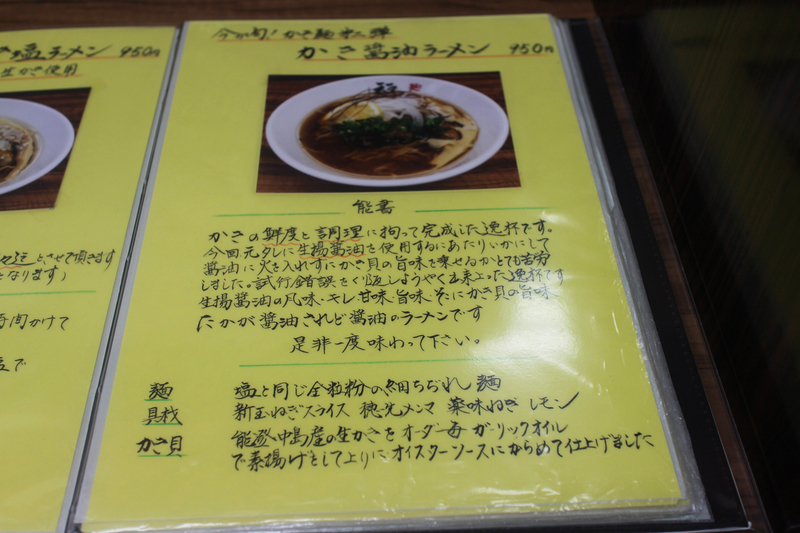 き塩ラーメン 950円
生かき使用
定とさせて頂きます
となります」
時間かけて
で
今が旬!かき麺第二弾
かき醤油ラーメン 950円
能書
かきの鮮度と調理に拘って完成した逸杯です。
今回元タレに生揚醤油を使用するにあたりいかにして
醤油に火を入れずにかき貝の旨味を乗せるかとても苦労
しました。試行錯誤をくり返しようやく出来上った逸杯です
生揚醤油の風味、キレ、甘味、旨味、そこにかき貝の旨味
たかが醤油されど醤油のラーメンです
是非一度味わって下さい。
麺 塩と同じ全粒粉の細ちぢれ麺
具材 新玉ねぎスライス 穂先メンマ 薬味ねぎ レモン
かき貝 能登中島産の生かきをオーダー毎ガーリックオイル
で素揚げをして上りにオイスターソースにからめて仕上げました